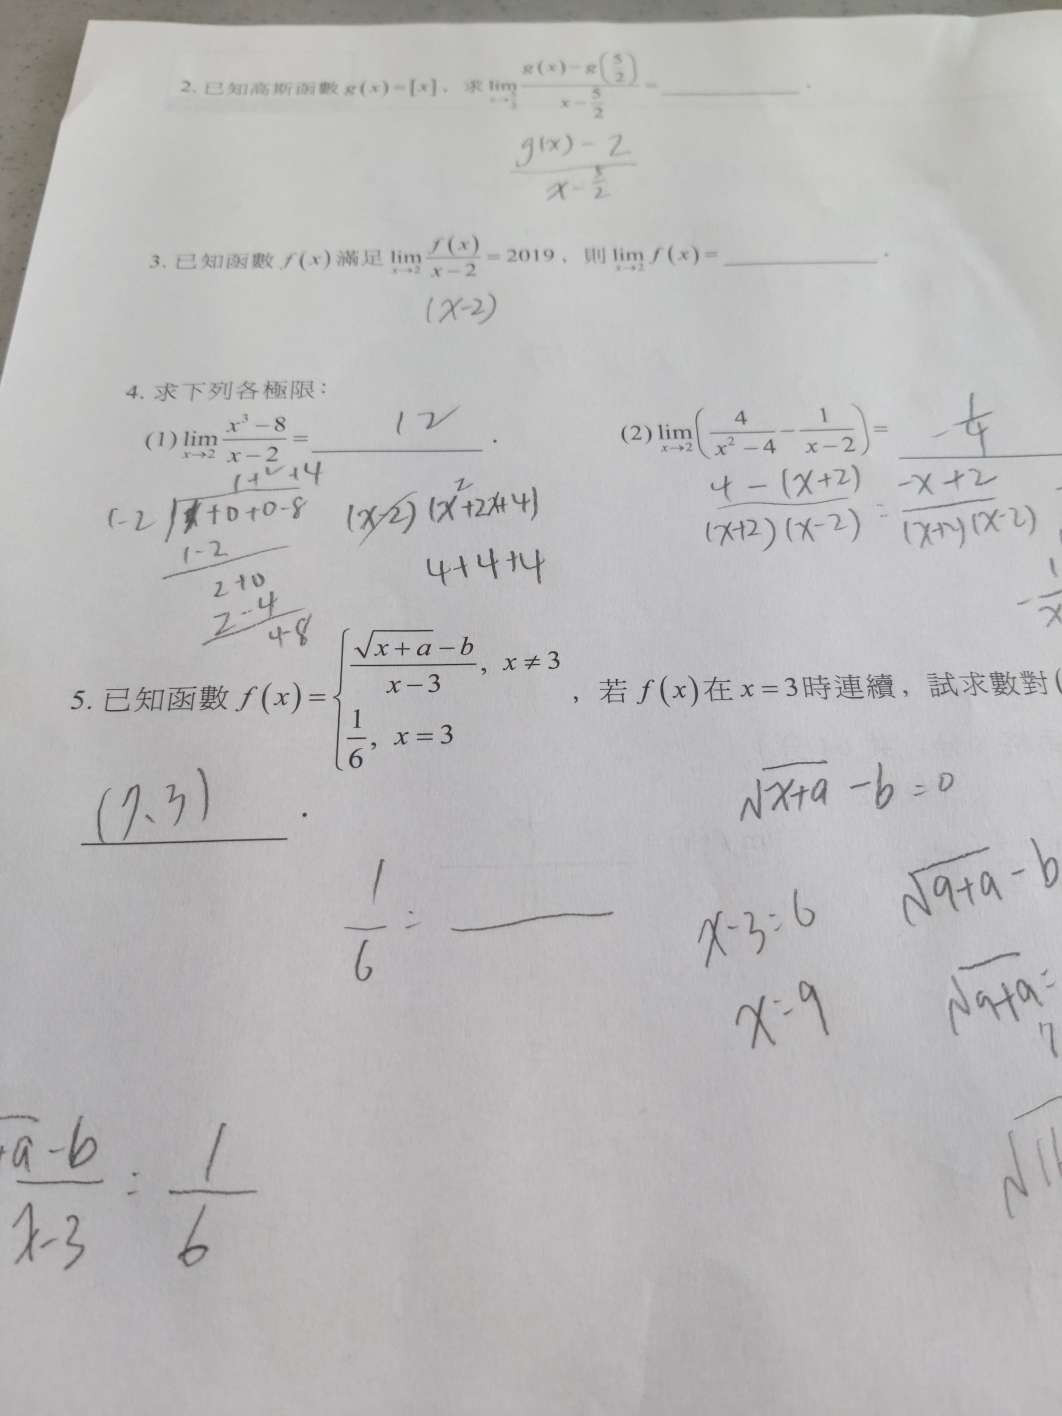 2. 已知高斯函數 g(x)=[x]，求 lim x→5/2 (g(x)-g(5/2))/(x-5/2) = ________ .
(g(x)-2)/(x-5/2)
3. 已知函數 f(x) 滿足 lim x→2 f(x)/(x-2) = 2019，則 lim x→2 f(x) = ________ .
(x-2)
4. 求下列各極限：
(1) lim x→2 (x³-8)/(x-2) = 12 .
(2) lim x→2 (4/(x²-4) - 1/(x-2)) = -1/4
1+2+4
1-2 ) 1+0+0-8
1-2
2+0
2-4
4-8
(x-2)(x²+2x+4)
4+4+4
(4-(x+2))/((x+2)(x-2)) = (-x+2)/((x+2)(x-2))
5. 已知函數 f(x) = { (√(x+a) - b)/(x-3), x≠3
1/6, x=3 ，若 f(x) 在 x=3 時連續，試求數對 (
(7、3) .
√(x+a) - b = 0
1/6 =
x-3=6
√(9+a) - b
x=9
√(9+a) =
7
+a-b / x-3 = 1/6